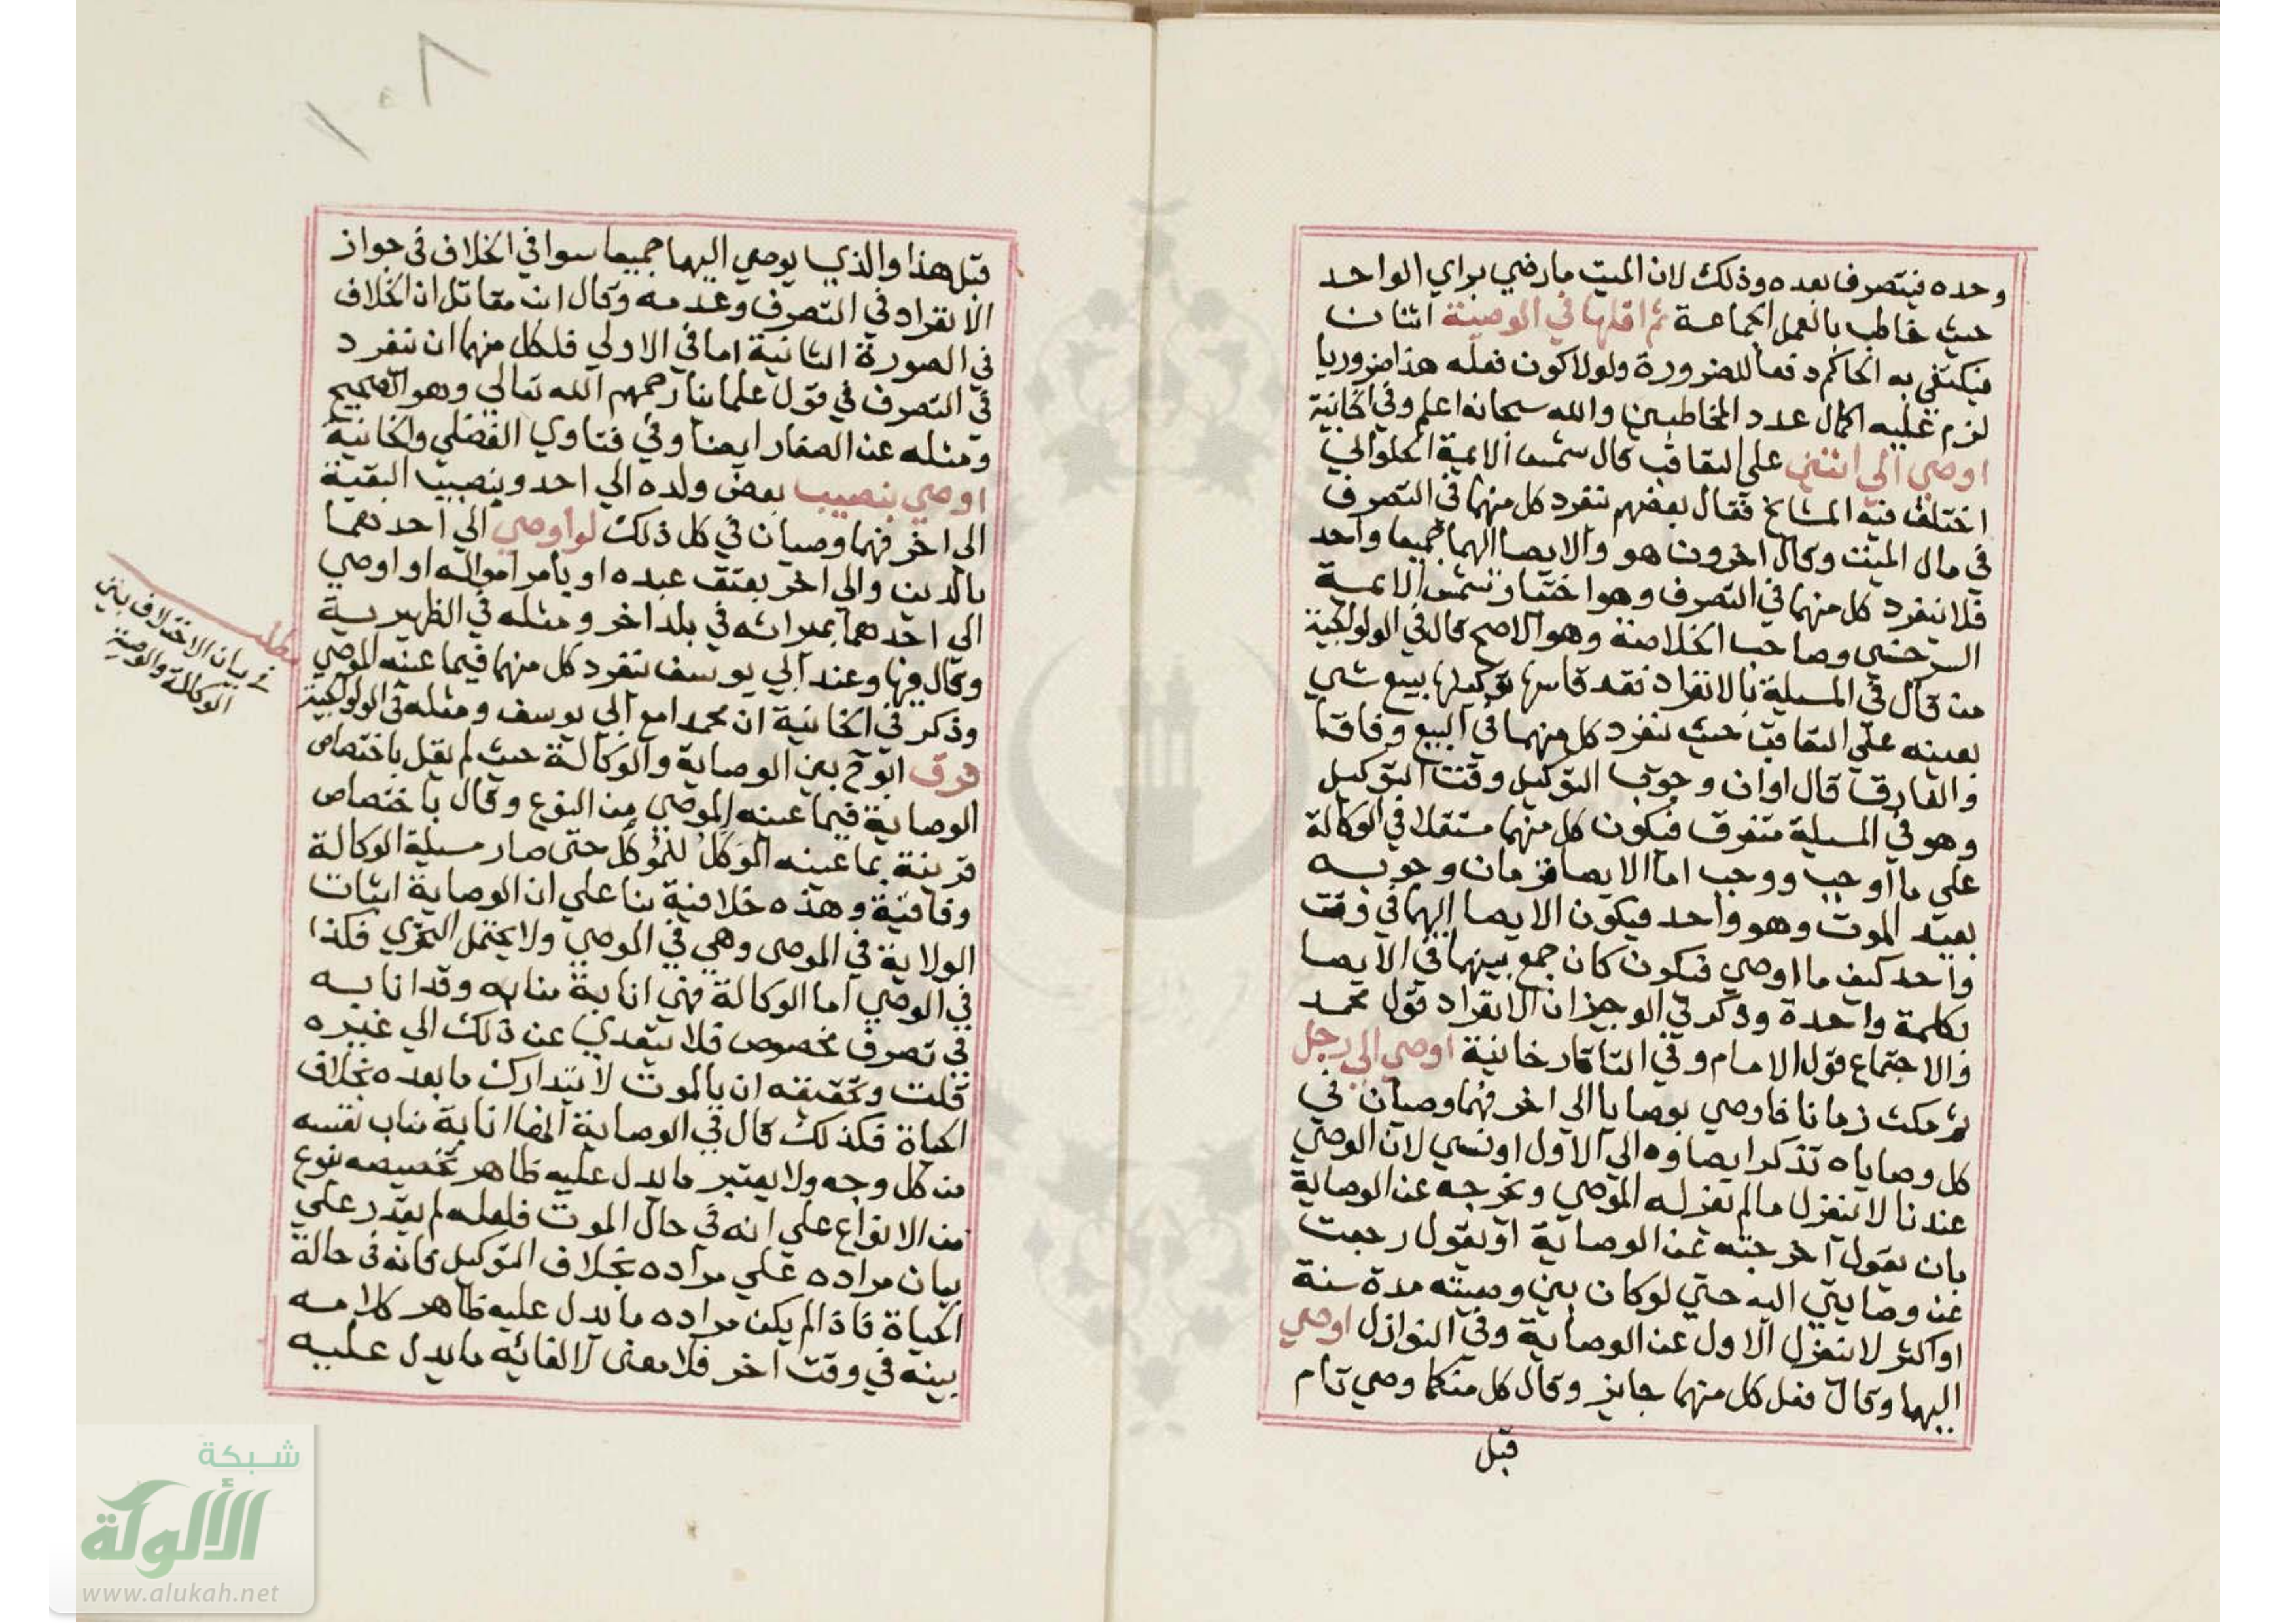 وحده فيتصرف بعده وذلك لان الميت ما رضي براي الواحد
حيث خاطب بالعمل الجماعة ثم اقلها في الوصية اثنان
فيكتفي به الحاكم دفعا للضرورة ولولا كون فعله هذا ضروريا
لزم عليه اكمال عدد المخاطبين والله سبحانه اعلم وفي الخانية
اوصي الي اثنين علي التعاقب قال شمس الايمة الحلواني
اختلف فيه المشايخ فقال بعضهم ينفرد كل منهما في التصرف
في مال الميت وقال اخرون هو والايصا اليهما جميعا واحد
فلا ينفرد كل منهما في التصرف وهو اختيار شمس الايمة
السرخسي وصاحب الخلاصة وهو الاصح قال في الولوالجية
من قال في المسيلة بالانفراد فقد قاسها بتوكيلها ببيع شي
بعينه علي التعاقب حيث ينفرد كل منهما في البيع وفاقا
والفارق قال اوان وجوب التوكيل وقت التوكيل
وهو في المسيلة متفرق فيكون كل منهما مستقلا في الوكالة
علي ما اوجب ووجب اما الايصا فزمان وجوبه
بعيد الموت وهو واحد فيكون الايصا اليهما في وقت
واحد كيف ما اوصي فيكون كان جمع بينهما في الايصا
بكلمة واحدة وذكر في الوجيز ان الانفراد قول محمد
والاجتماع قول الامام وفي التاتارخانية اوصي الي رجل
ثم مكث زمانا فاوصي بوصايا الي اخر فهما وصيان في
كل وصاياه تذكر ايصاوه الي الاول او نسي لان الوصي
عندنا لا ينعزل ما لم يعزله الموصي ويخرجه عن الوصاية
بان يقول اخرجته عن الوصاية او يقول رجعت
عن وصايتي اليه حتي لو كان بين وصيته مدة سنة
او اكثر لا ينعزل الاول عن الوصاية وفي النوازل اوصي
اليهما وقال فعل كل منهما جايز وقال كل منكما وصي تام
قبل
١٠٨
قبل هذا والذي يوصي اليهما جميعا سوا في الخلاف في جواز
الانفراد في التصرف وعدمه وقال ابن مقاتل ان الخلاف
في الصورة الثانية اما في الاولي فلكل منهما ان ينفرد
في التصرف في قول علماينا رحمهم الله تعالي وهو الصحيح
ومثله عن الصفار ايضا وفي فتاوي الفضلي والخانية
اوصي بنصيب بعض ولده الي احد وبنصيب البقية
الي اخر فهما وصيان في كل ذلك لو اوصي الي احدهما
بالدين والي اخر بعتق عبده او بامر امواله او اوصي
الي احدهما بميراثه في بلد اخر ومثله في الظهيرية
وقال فيها وعند ابي يوسف ينفرد كل منهما فيما عينه الموصي
وذكر في الخانية ان محمدا مع ابي يوسف ومثله في الولوالجية
فرق ابو ح بين الوصاية والوكالة حيث لم يقل باختصاص
الوصاية فيما عينه الموصي من النوع وقال باختصاص
قرينة بما عينه الموكل للموكل حتى صار مسيلة الوكالة
وفاقية وهذه خلافية بنا علي ان الوصاية اثبات
الولاية في الموصى وهي في الموصي ولا يحتمل التجزي فكذا
في الوصي اما الوكالة فهي انابة منابه وقد انابه
في تصرف مخصوص فلا يتعدي عن ذلك الي غيره
قلت وتحقيقه ان بالموت لا يتدارك ما بعده بخلاف
الحياة فكذلك قال في الوصاية انها انابة مناب نفسه
من كل وجه ولا يعتبر ما يدل عليه ظاهر تخصيصه بنوع
من الانواع علي انه في حال الموت فلعله لم يقدر علي
بيان مراده علي مراده بخلاف التوكيل فانه في حالة
الحياة فاذا لم يكن مراده ما يدل عليه ظاهر كلامه
بينه في وقت اخر فلا معنى لالغائه ما يدل عليه
مطلب
في بيان الاختلاف بين
الوكالة والوصية
شبكة
الألوكة
www.alukah.net